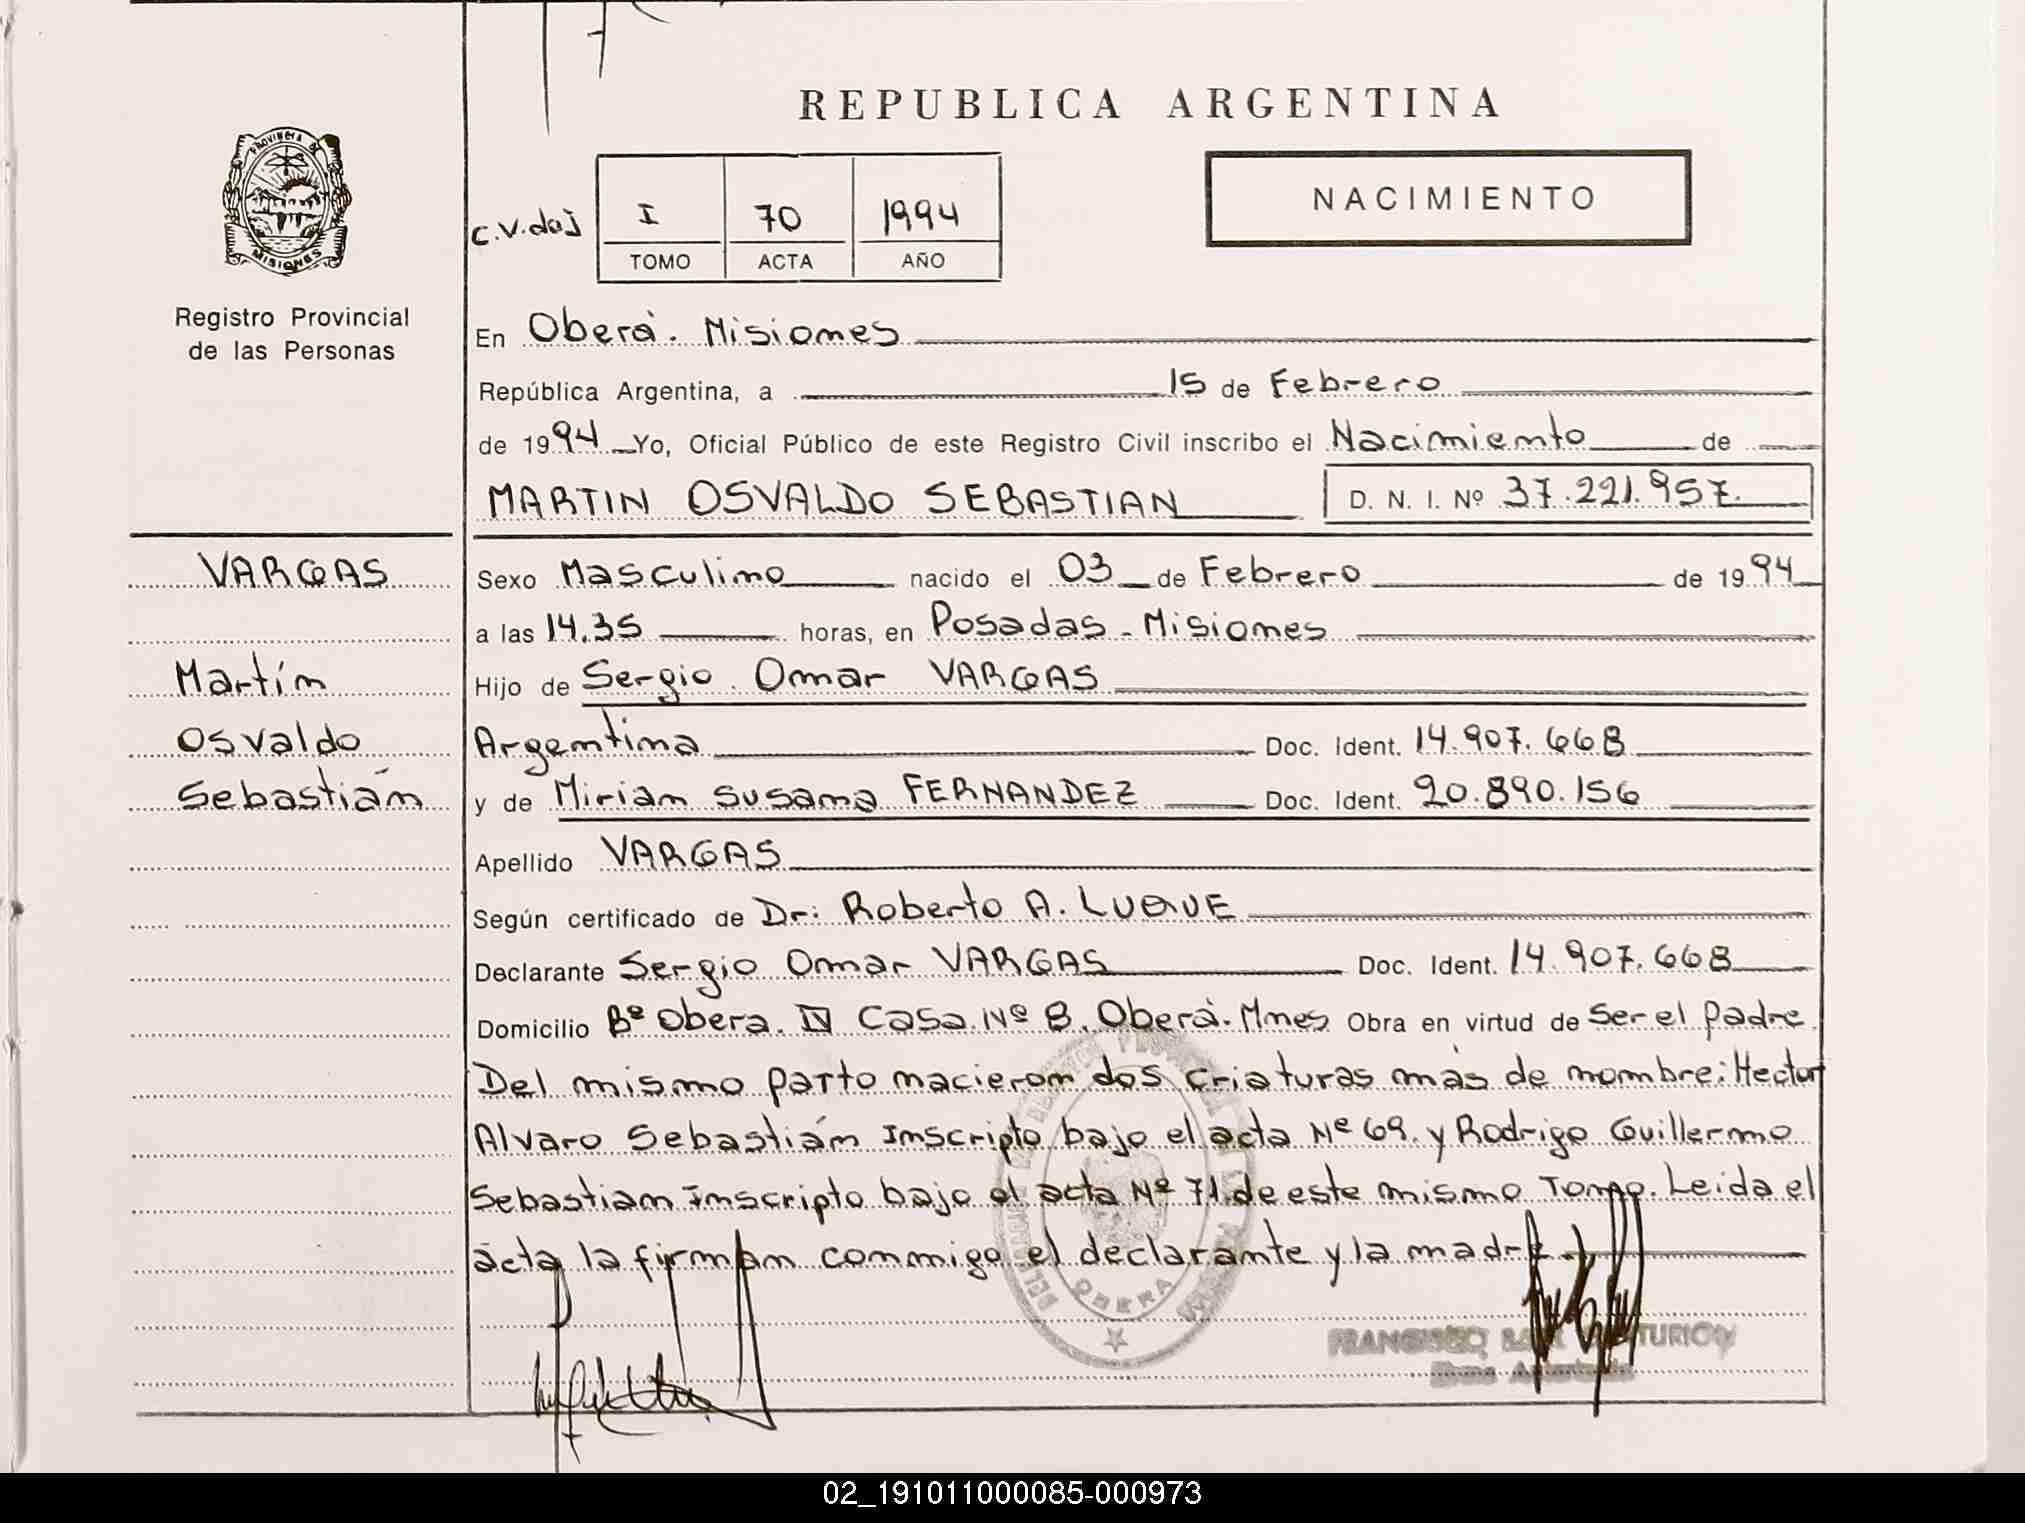 REPUBLICA ARGENTINA
PROVINCIA DE
MISIONES
Registro Provincial
de las Personas
C.V.
I 70 1994
TOMO ACTA AÑO
NACIMIENTO
En Oberà. Misiones
República Argentina, a 15 de Febrero
de 1994 Yo, Oficial Público de este Registro Civil inscribo el Nacimiento de
MARTIN OSVALDO SEBASTIAN D. N. I. Nº 37.221.957.
VARGAS
Martín
Osvaldo
Sebastián
Sexo Masculino nacido el 03 de Febrero de 1994
a las 14.35 horas, en Posadas - Misiones
Hijo de Sergio Omar VARGAS
Argentina Doc. Ident. 14.907.668
y de Miriam Susana FERNANDEZ Doc. Ident. 20.890.156
Apellido VARGAS
Según certificado de Dr: Roberto A. LUQUE
Declarante Sergio Omar VARGAS Doc. Ident. 14.907.668
Domicilio Bº Obera. IV Casa Nº 8. Oberà. Mnes Obra en virtud de Ser el padre.
Del mismo parto nacieron dos criaturas màs de nombre: Hector
Alvaro Sebastián Inscripto bajo el acta Nº 69. y Rodrigo Guillermo
Sebastian Inscripto bajo el acta Nº 71. de este mismo Tomo. Leida el
acta la firman conmigo el declarante y la madre
OBERA
02_191011000085-000973